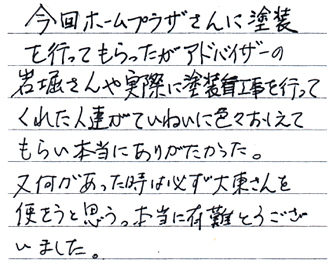 今回ホームプラザさんに塗装
を行ってもらったがアドバイザーの
岩堀さんや実際に塗装工事を行って
くれた人達がていねいに色々おしえて
もらい本当にありがたかった。
又何があった時は必ず大東さんを
使そうと思う。本当に有難とうござ
いました。